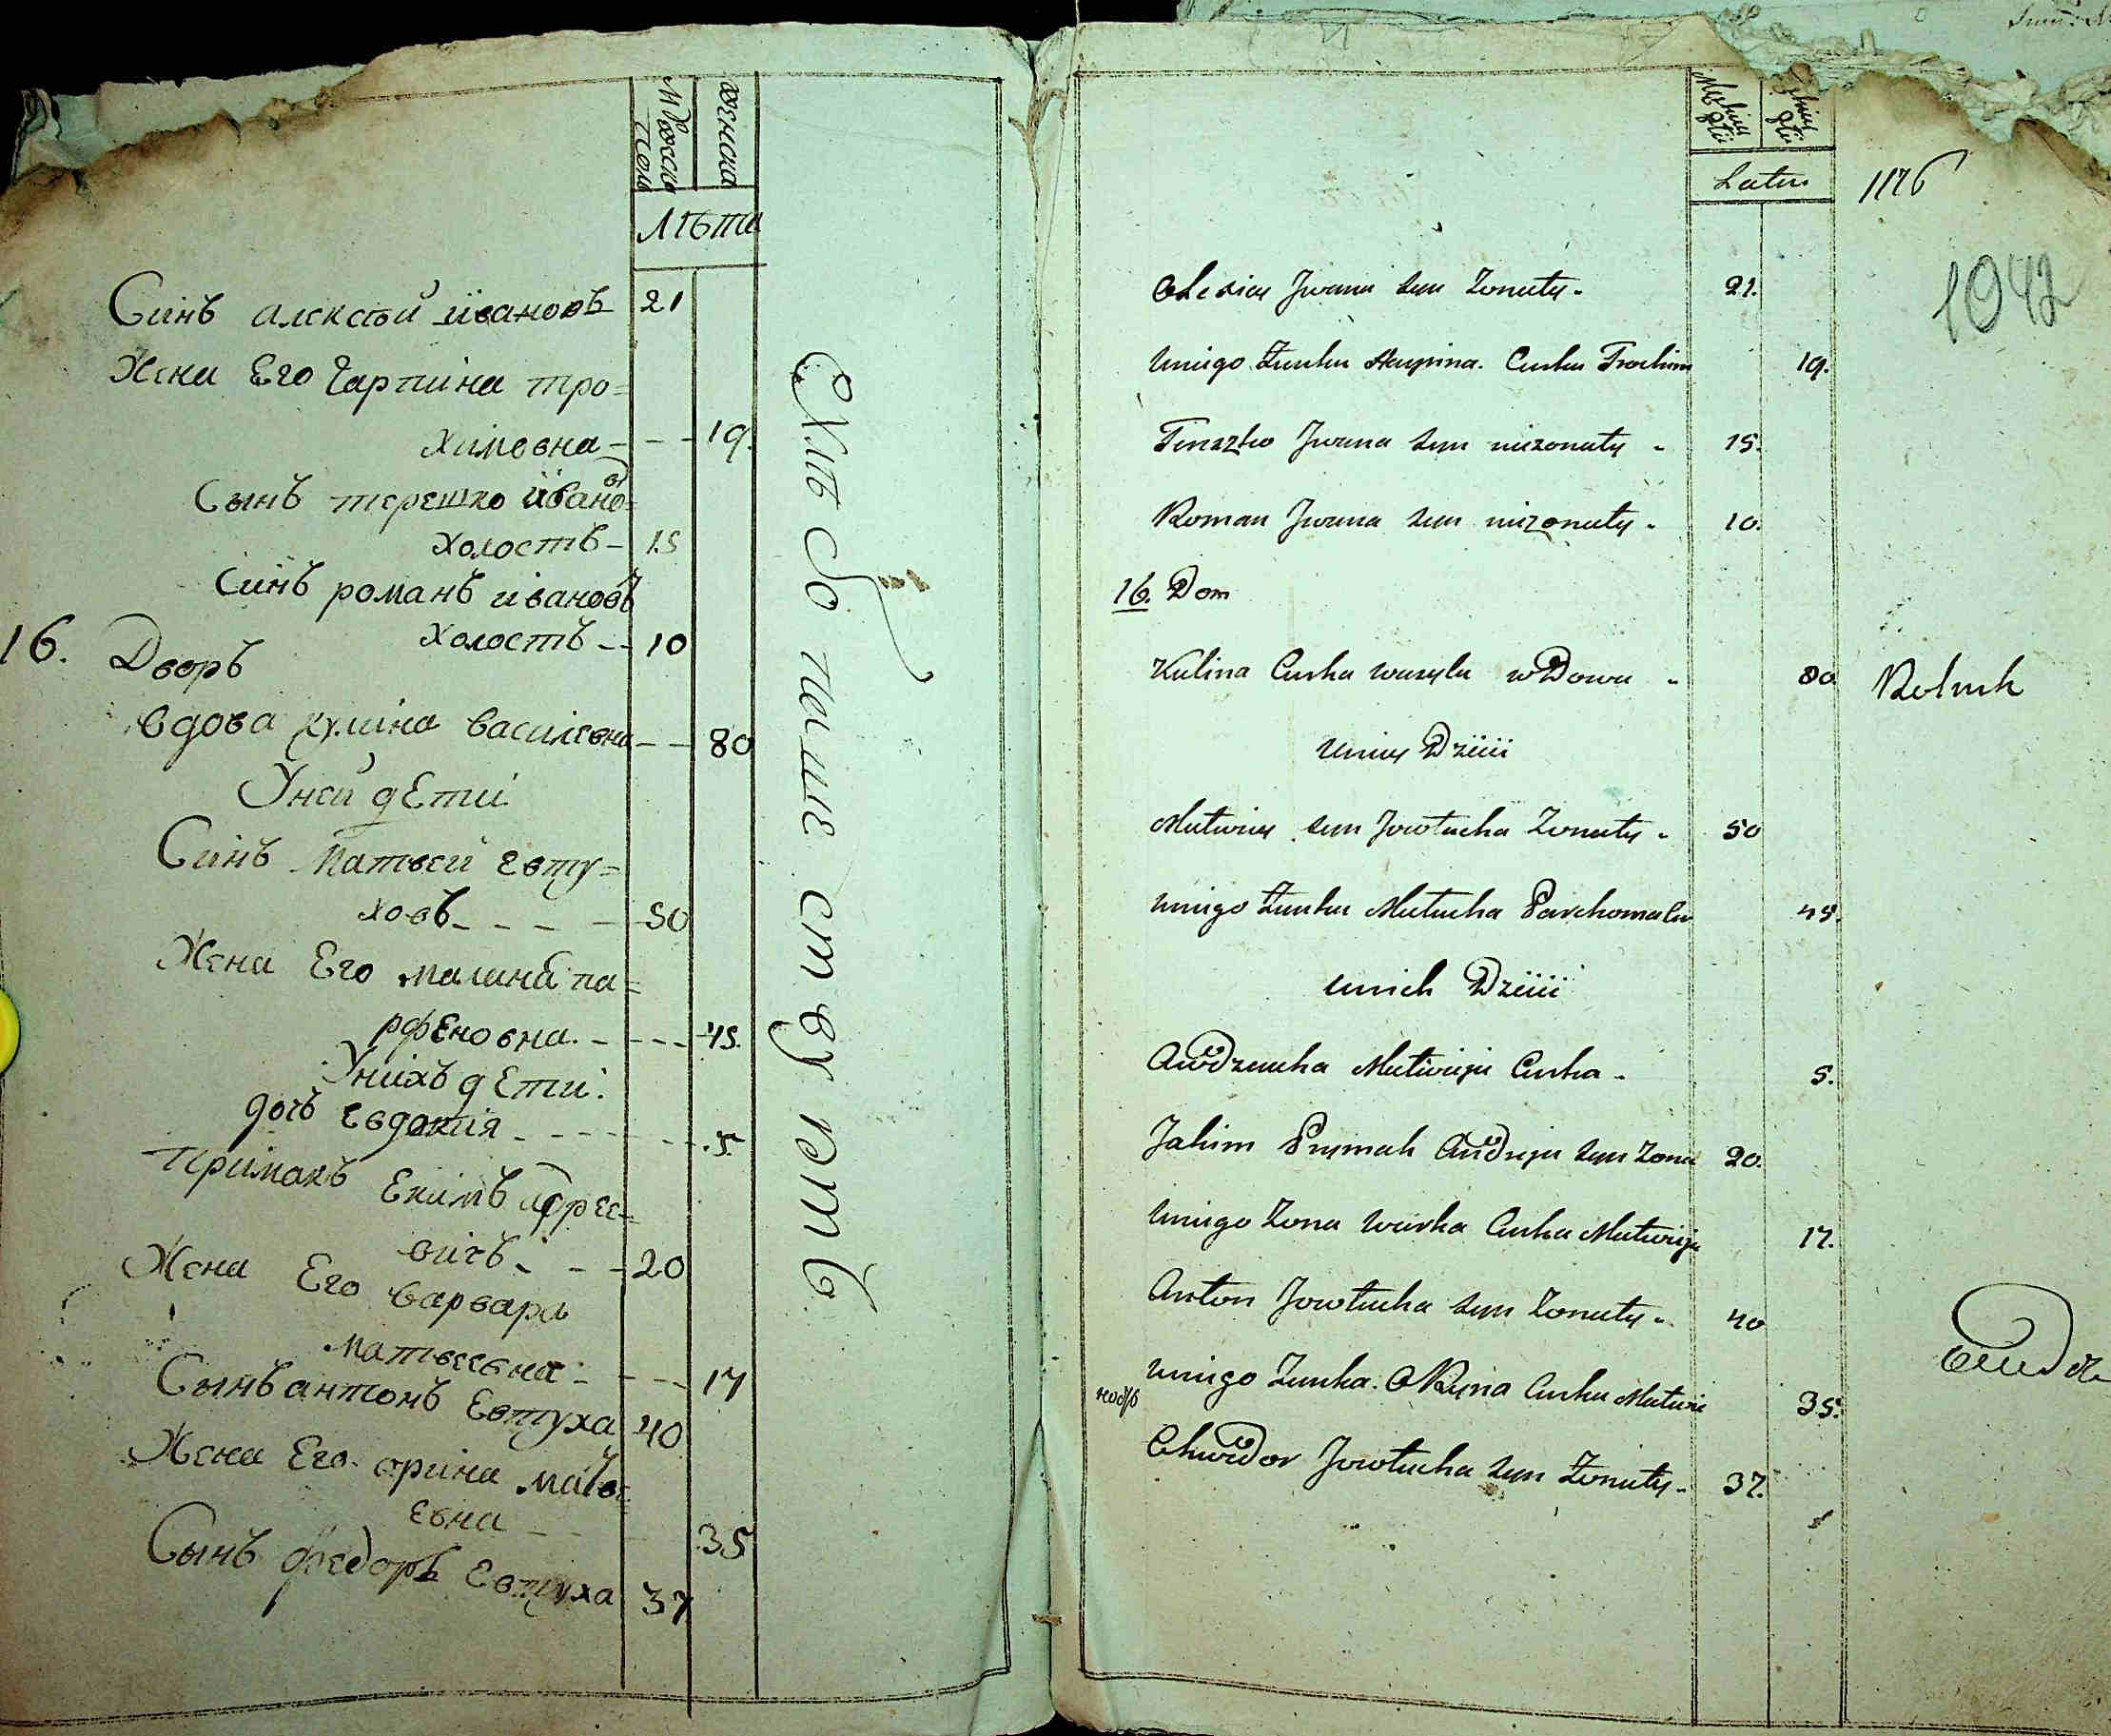 Мужеска полъ
женска
Лѣта
Синъ алексѣй ївановъ 21
Жена Его Гарпина тро=
химовна - - - 19.
Сынъ терешко їванов
холостъ - 15
Синъ романъ івановъ
холостъ - - 10
16. Дворъ
вдова кулина василевна - - 80
Уней дЕти
Синъ матвей евту=
ховъ - - - - 50
Жена Его малана па=
рфЕновна. - - - - 45.
Унихъ дЕти.
дочъ Евдокия - - - - - 5.
примакъ Екимъ
вичъ. - - - 20
Жена Его варвара
матвеевна - - - - 17
Сынъ антонъ Евтуха 40
Жена Его орина матве
евна - - 35
Сынъ федоръ Евтуха 37
хлебопашествуютъ
Latu
1176
1042
Olexiey Jwana syn Zonaty - 21.
Uniego Zonka Harpina. Curka Trochim 19.
Teraszko Jwana Syn niezonaty - 15.
Roman Jwana syn niezonaty - 10.
16. Dom
Kulina Curka wasyla wDowa - 80 Rolnik
Uniey Dzieci
Matwiey syn Jowtucha Zonaty - 50
Uniego Zonka Parchoma Cur 45.
Unich Dzieci
Matwieja Curka - 5.
Jakim Prymak Andreja syn Zona 20.
Uniego Zona warka Curka Matwieja 17.
Anton Jowtucha syn Zonaty - 40
Uniego Zonka. Curka Matwie 35.
Chwedor Jowtucha syn Zonaty - 37.